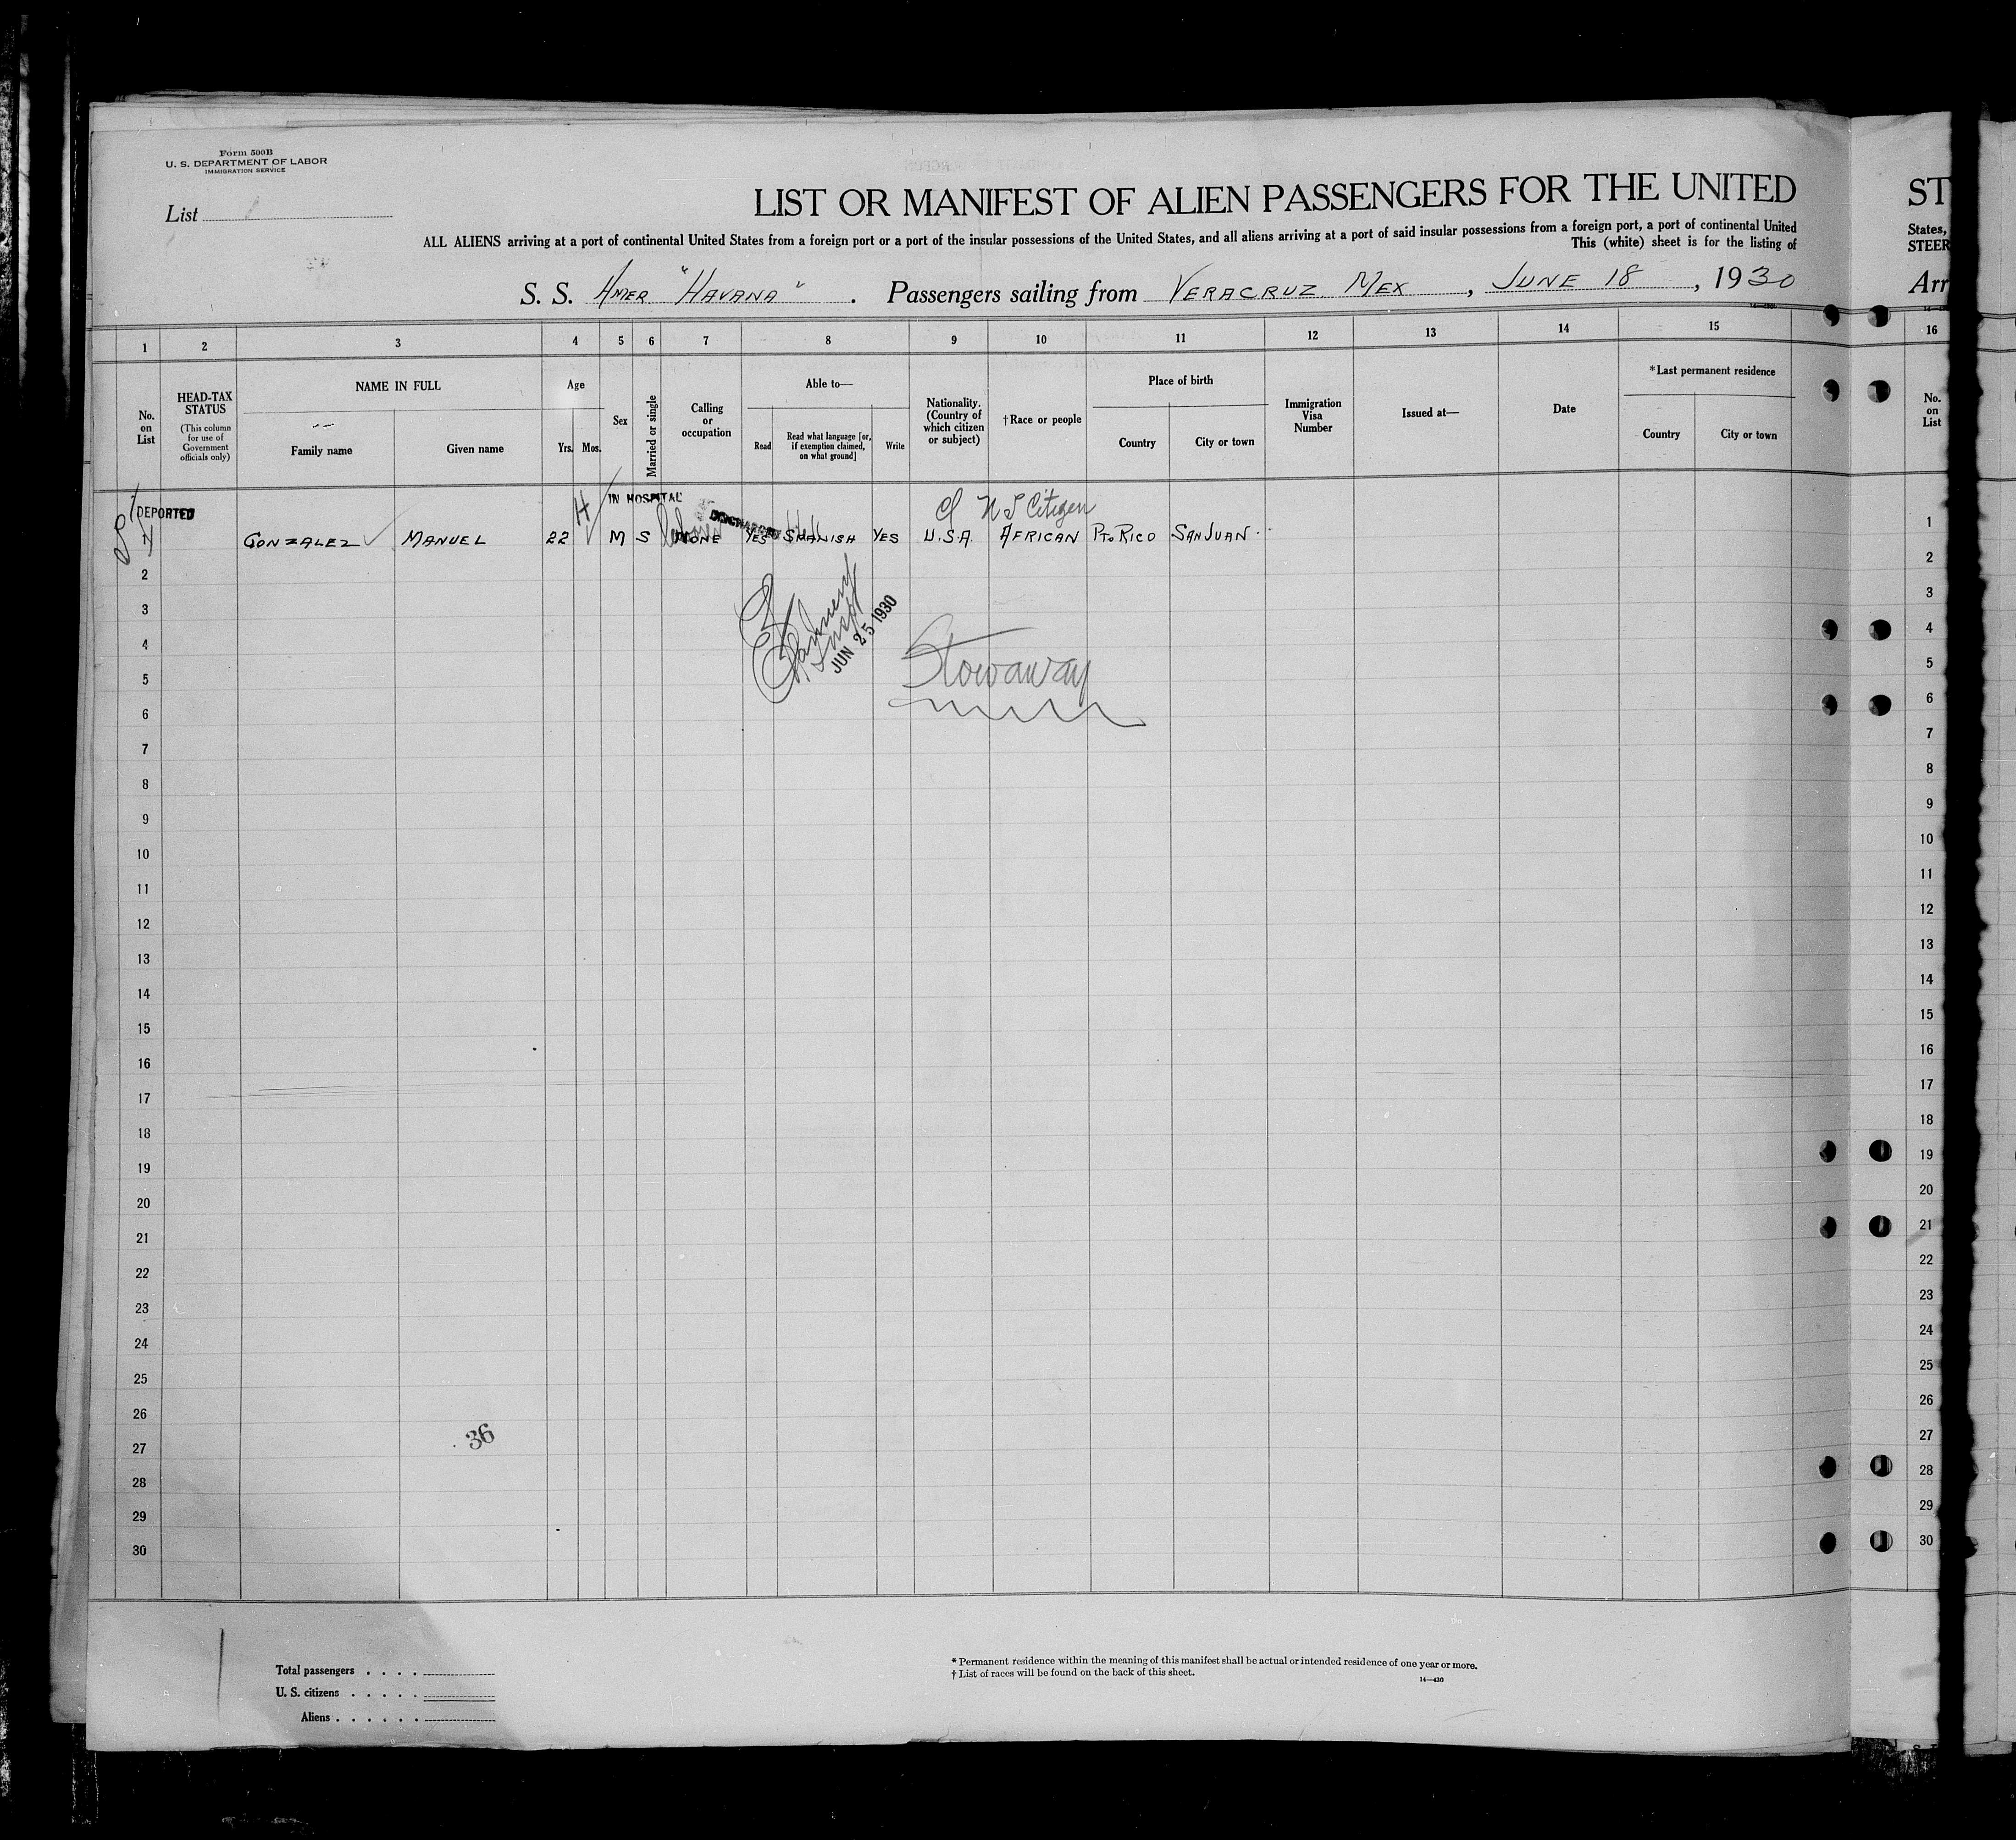 Form 500B
U. S. DEPARTMENT OF LABOR
IMMIGRATION SERVICE
List
LIST OR MANIFEST OF ALIEN PASSENGERS FOR THE UNITED
ALL ALIENS arriving at a port of continental United States from a foreign port or a port of the insular possessions of the United States, and all aliens arriving at a port of said insular possessions from a foreign port, a port of continental United
This (white) sheet is for the listing of
S. S. AMER "HAVANA" . Passengers sailing from VERACRUZ MEX , JUNE 18 , 1930
ST
States,
STEER
Arr
1 2 3 4 5 6 7 8 9 10 11 12 13 14 15 16
No. on List
HEAD-TAX STATUS
(This column for use of Government officials only)
NAME IN FULL
Family name
Given name
Age
Yrs. Mos.
Sex
Married or single
Calling or occupation
Able to—
Read
Read what language [or, if exemption claimed, on what ground]
Write
Nationality. (Country of which citizen or subject)
†Race or people
Place of birth
Country
City or town
Immigration Visa Number
Issued at—
Date
*Last permanent residence
Country
City or town
No. on List
DEPORTED
IN HOSPITAL
DISCHARGED
U S Citizen
1 GONZALEZ MANUEL 22 M S NONE YES SPANISH YES U.S.A. AFRICAN PTO RICO SAN JUAN 1
2 2
3 3
4 4
5 5
6 6
7 7
8 8
9 9
10 10
11 11
12 12
13 13
14 14
15 15
16 16
17 17
18 18
19 19
20 20
21 21
22 22
23 23
24 24
25 25
26 26
27 27
28 28
29 29
30 30
Insp
JUN 25 1930
Stowaway
36
Total passengers
U. S. citizens
Aliens
* Permanent residence within the meaning of this manifest shall be actual or intended residence of one year or more.
† List of races will be found on the back of this sheet.
14—430